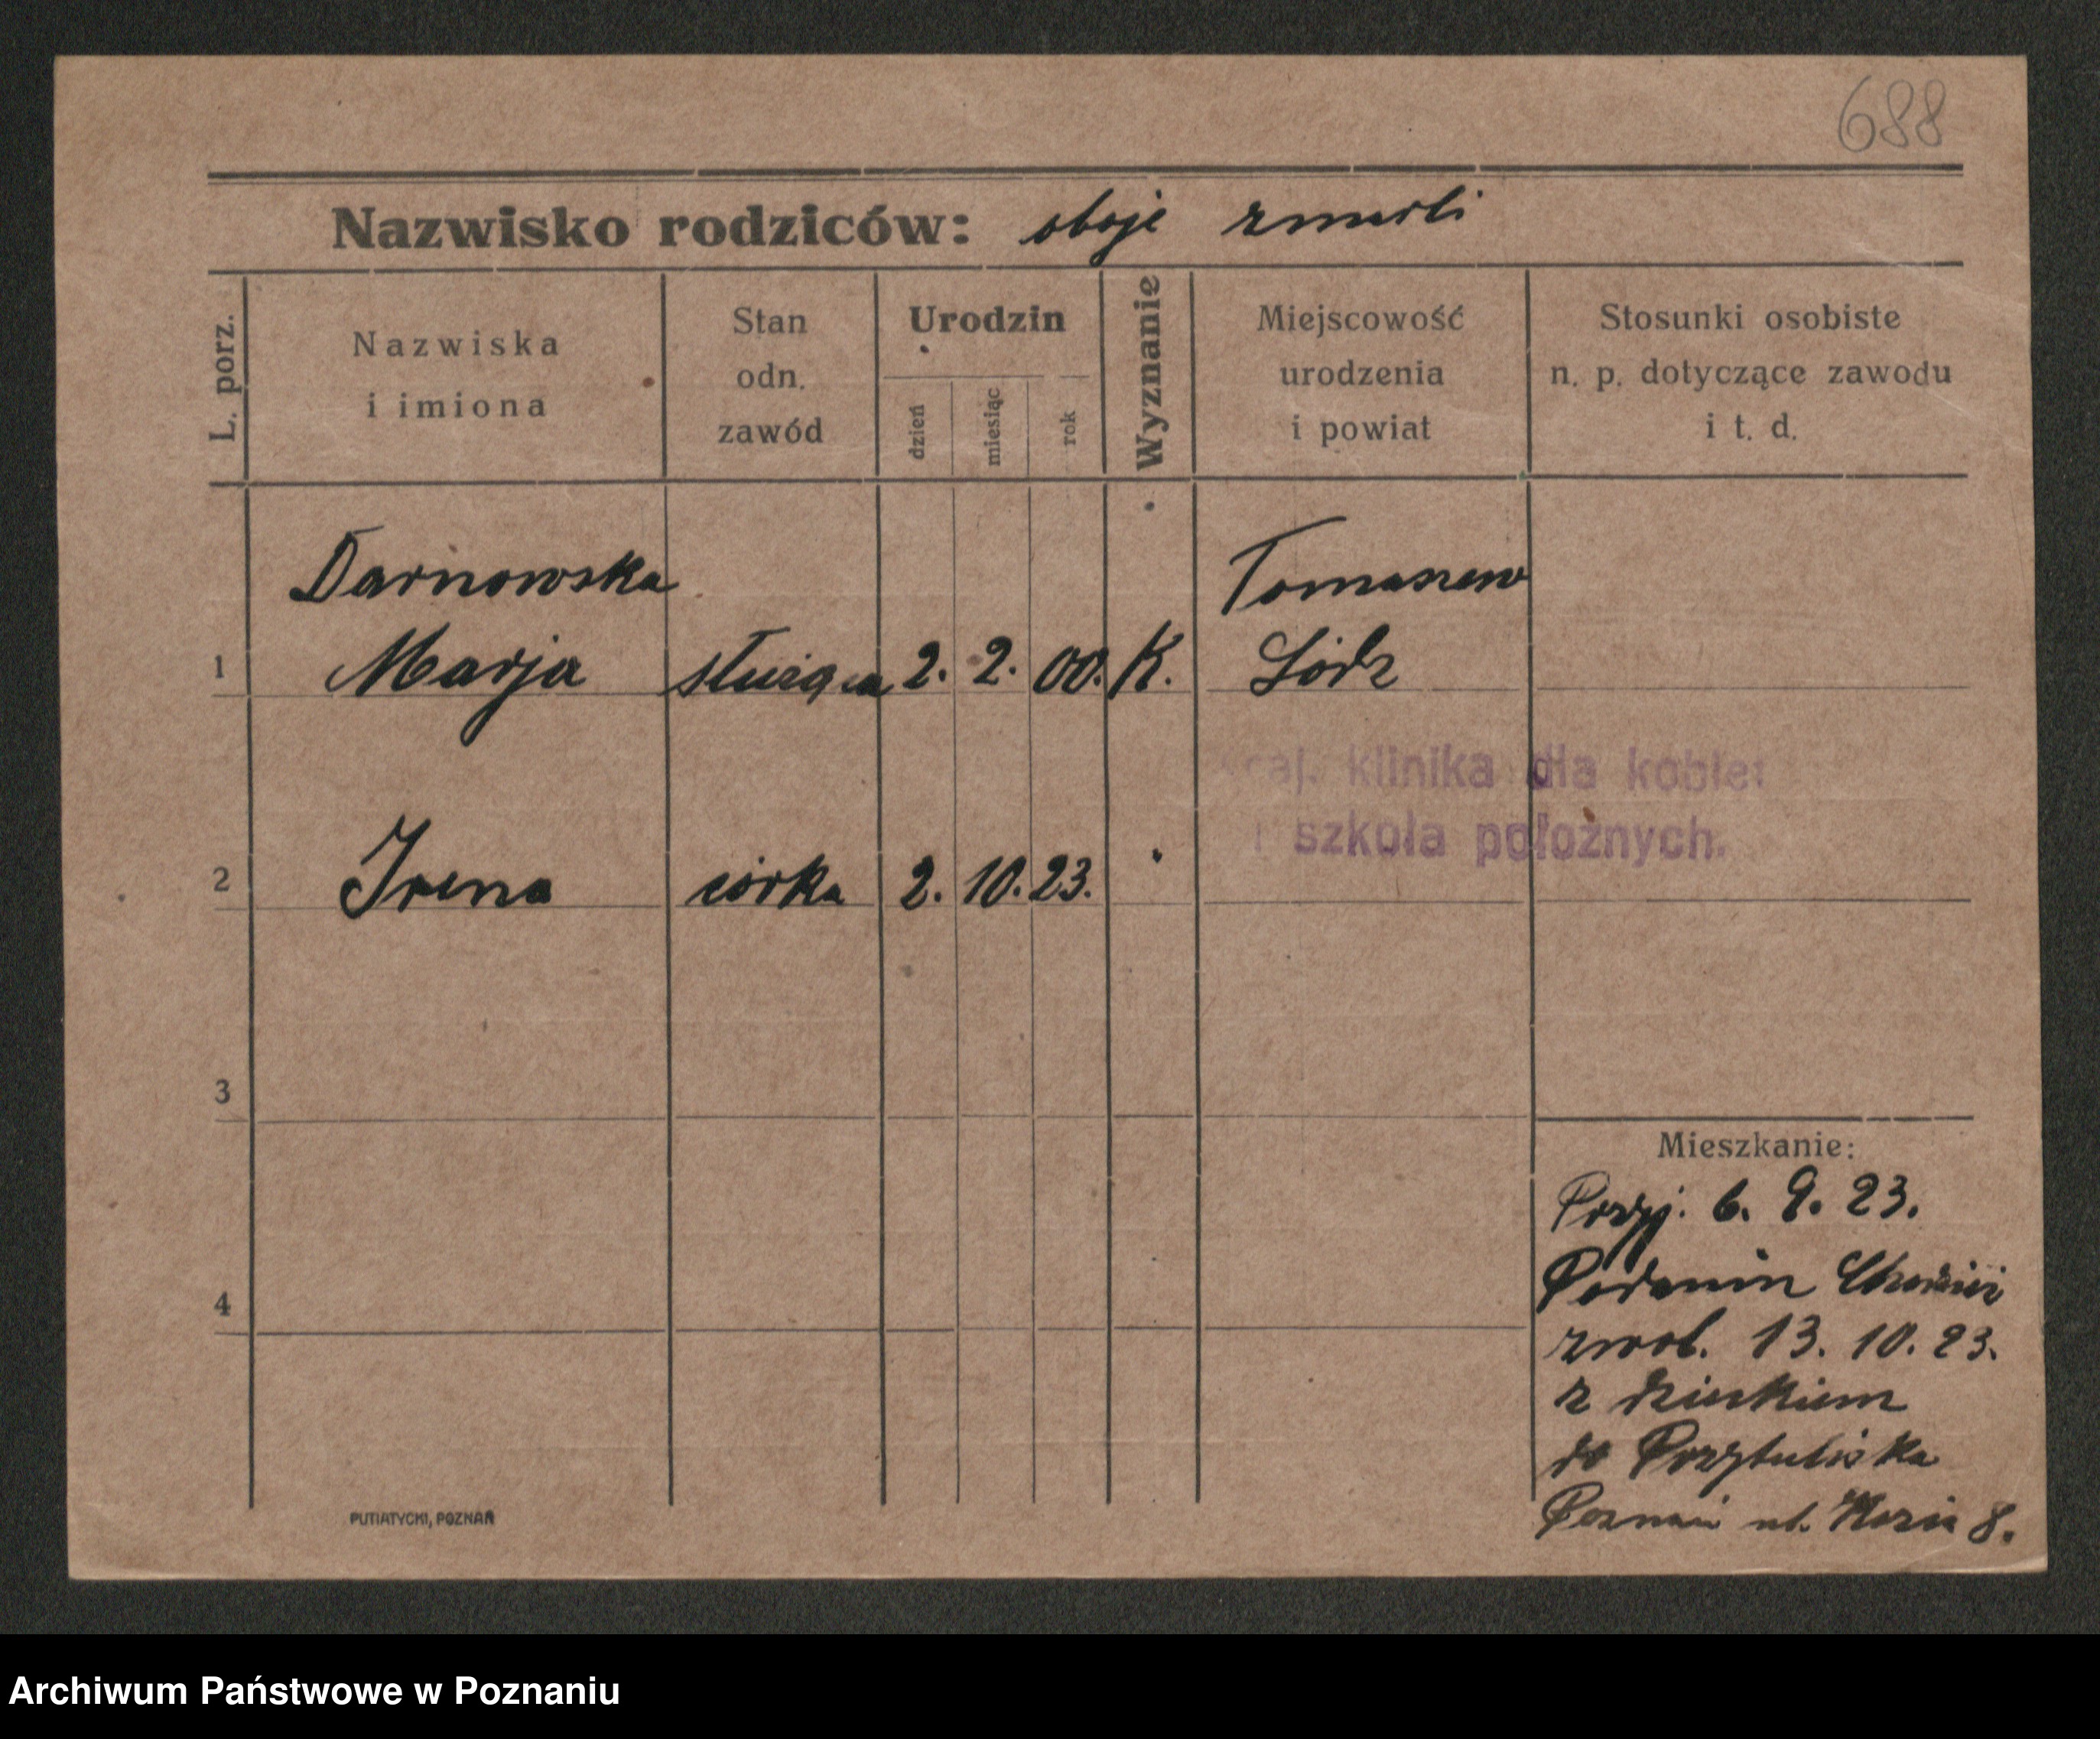 688
Nazwisko rodziców: oboje zmarli
L. porz.
Nazwiska
i imiona
Stan
odn.
zawód
Urodzin
dzień
miesiąc
rok
Wyznanie
Miejscowość
urodzenia
i powiat
Stosunki osobiste
n. p. dotyczące zawodu
i t. d.
Darnowska
Tomaszew
1 Marja służąca 2. 2. 00. K. Łódz
raj. klinika dla kobiet
i szkoła położnych.
2 Irena córka 2. 10. 23.
3
4
Mieszkanie:
Przyj. 6. 9. 23.
Podanin
zwol. 13. 10. 23.
z dzieckiem
do Przytuliska
Poznań ul. 8.
PUTIATYCKI, POZNAŃ
Archiwum Państwowe w Poznaniu